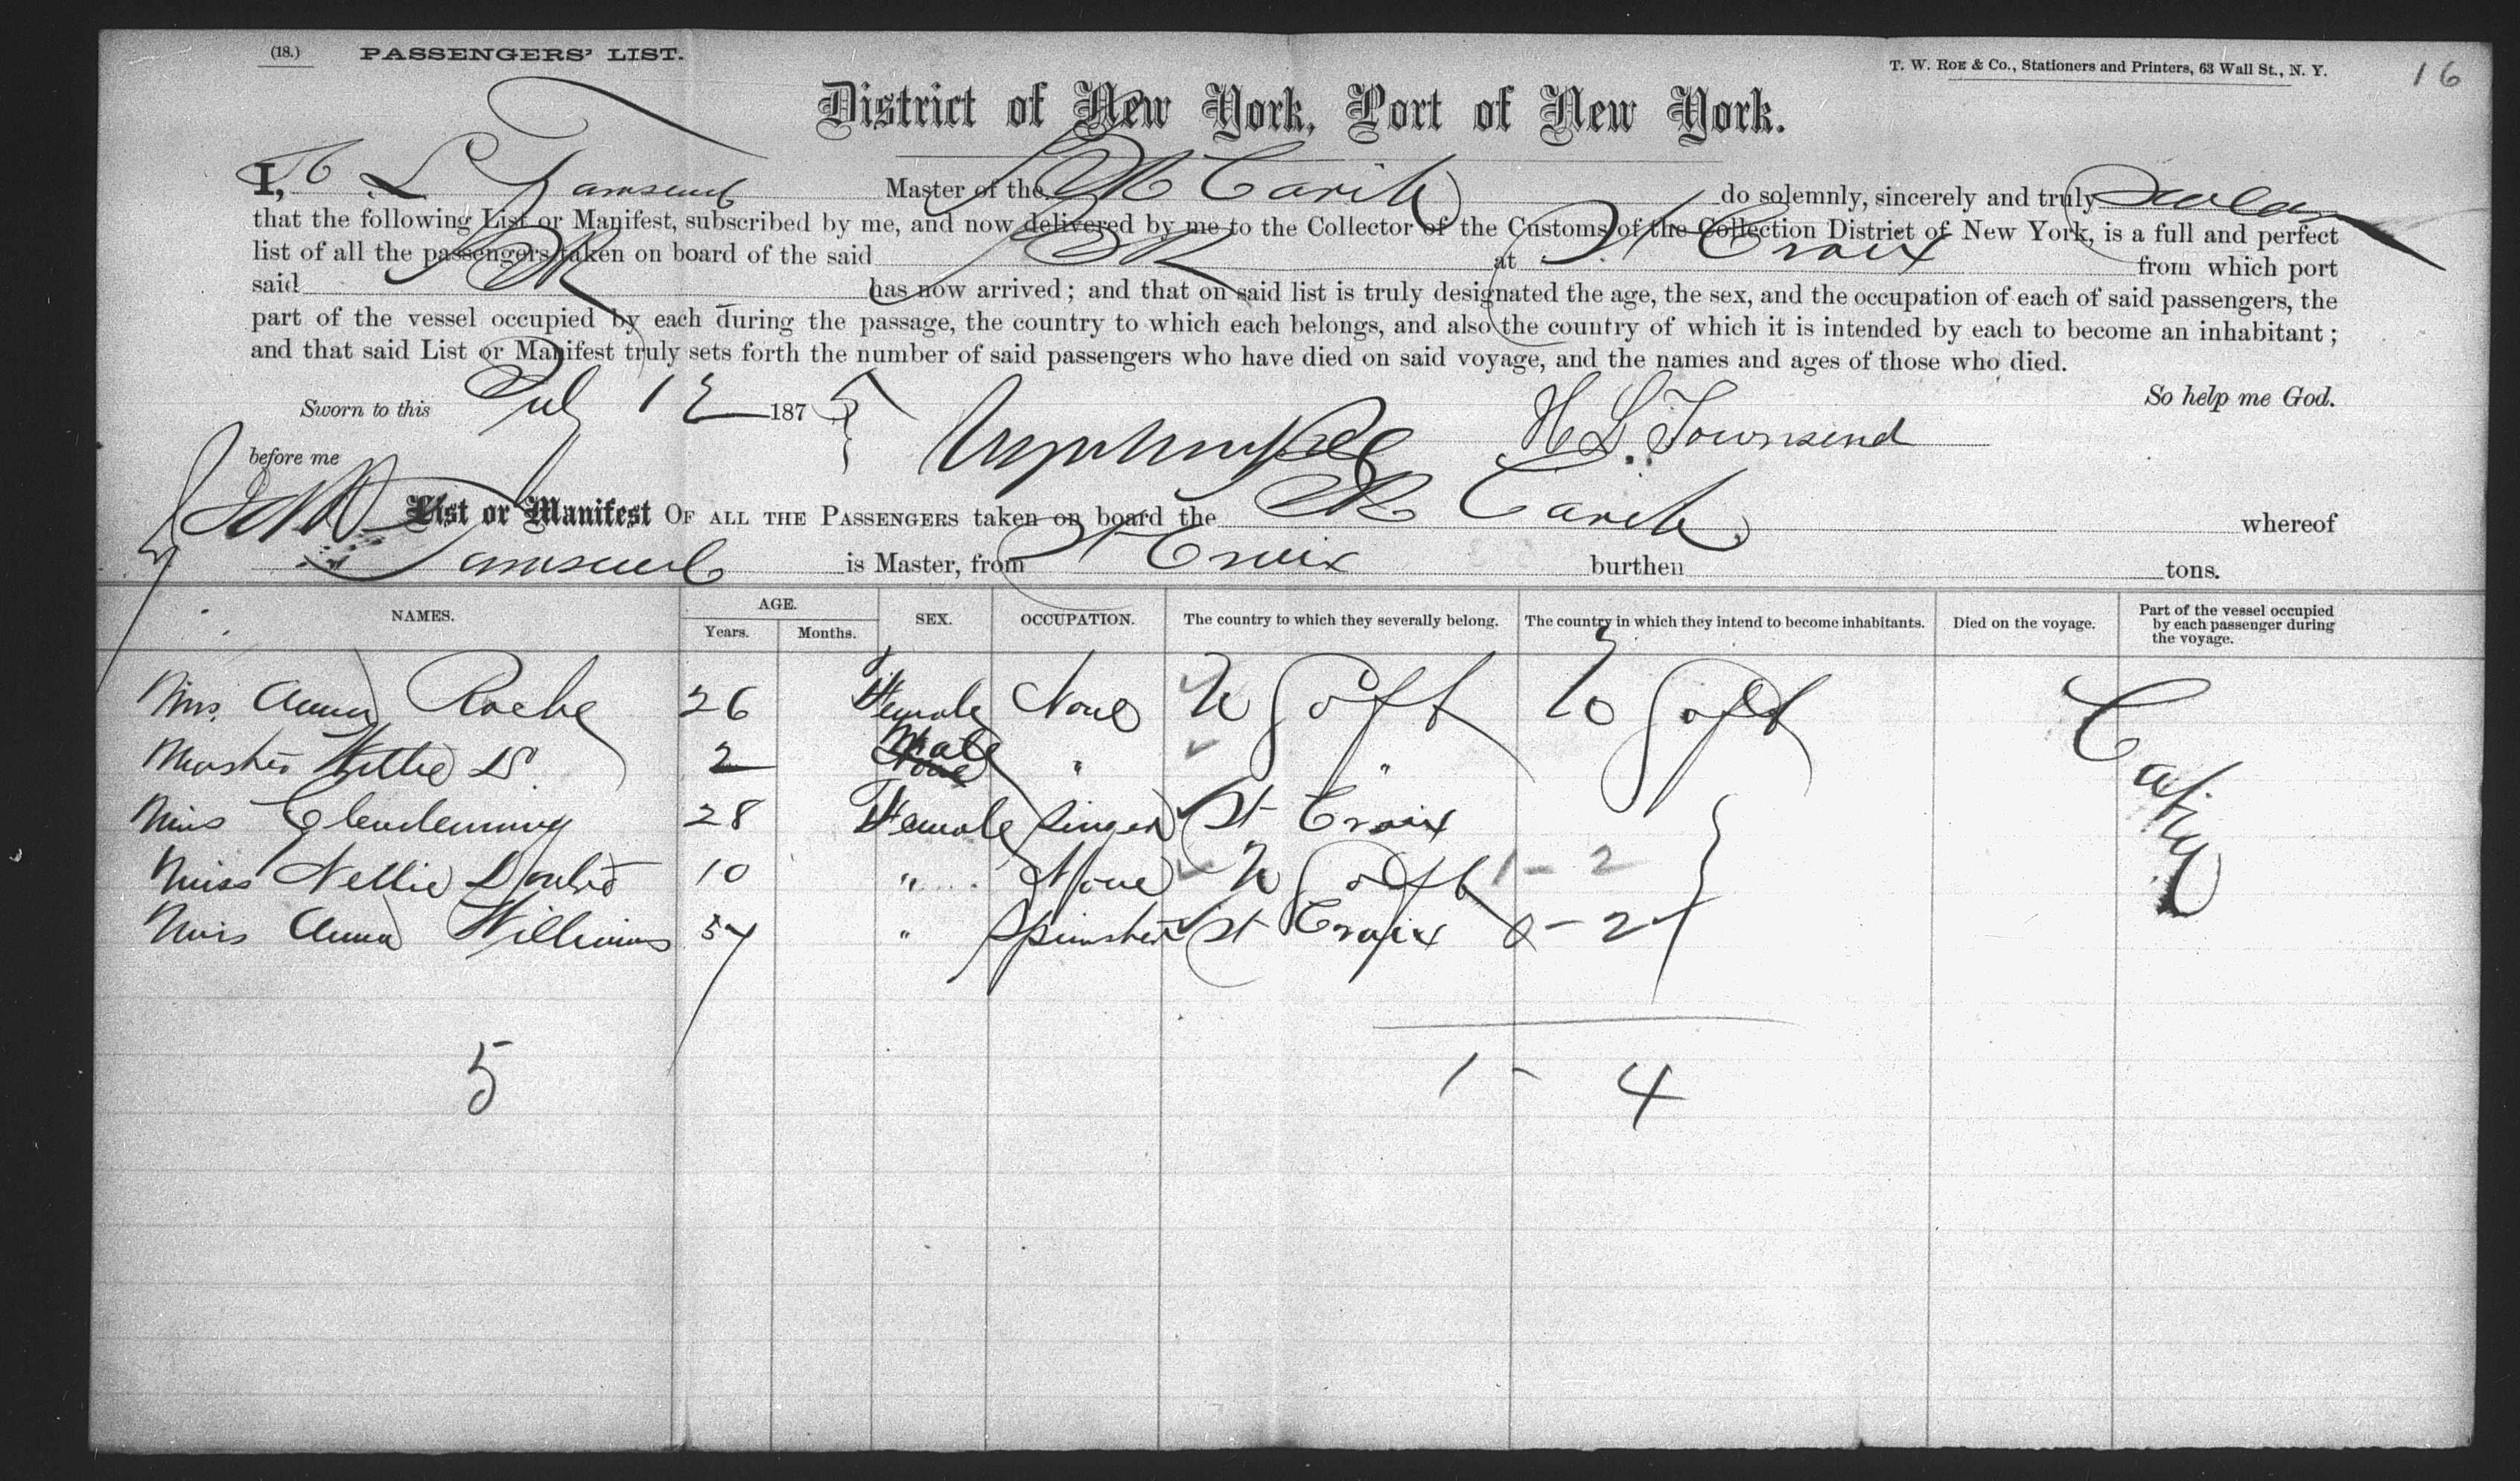 (18.) PASSENGERS' LIST.
T. W. ROE & Co., Stationers and Printers, 63 Wall St., N. Y.
16
District of New York, Port of New York.
I, H L Townsend Master of the Carib do solemnly, sincerely and truly swear
that the following List or Manifest, subscribed by me, and now delivered by me to the Collector of the Customs of the Collection District of New York, is a full and perfect
list of all the passengers taken on board of the said at St Croix from which port
said has now arrived; and that on said list is truly designated the age, the sex, and the occupation of each of said passengers, the
part of the vessel occupied by each during the passage, the country to which each belongs, and also the country of which it is intended by each to become an inhabitant;
and that said List or Manifest truly sets forth the number of said passengers who have died on said voyage, and the names and ages of those who died.
So help me God.
Sworn to this July 12 1875
H L. Townsend
before me
List or Manifest OF ALL THE PASSENGERS taken on board the Carib whereof
Townsend is Master, from St Croix burthen tons.
NAMES. AGE. Years. Months. SEX. OCCUPATION. The country to which they severally belong. The country in which they intend to become inhabitants. Died on the voyage. Part of the vessel occupied by each passenger during the voyage.
Mrs. Anna Roche 26 Female None Cabin
Master Willie D 2 Male " "
Miss Clendenning 28 Female Singer St Croix
Miss Nellie 10 " None 1 - 2
Miss Anna Williams 54 " Spinster St Croix 0 - 2
5
1 - 4